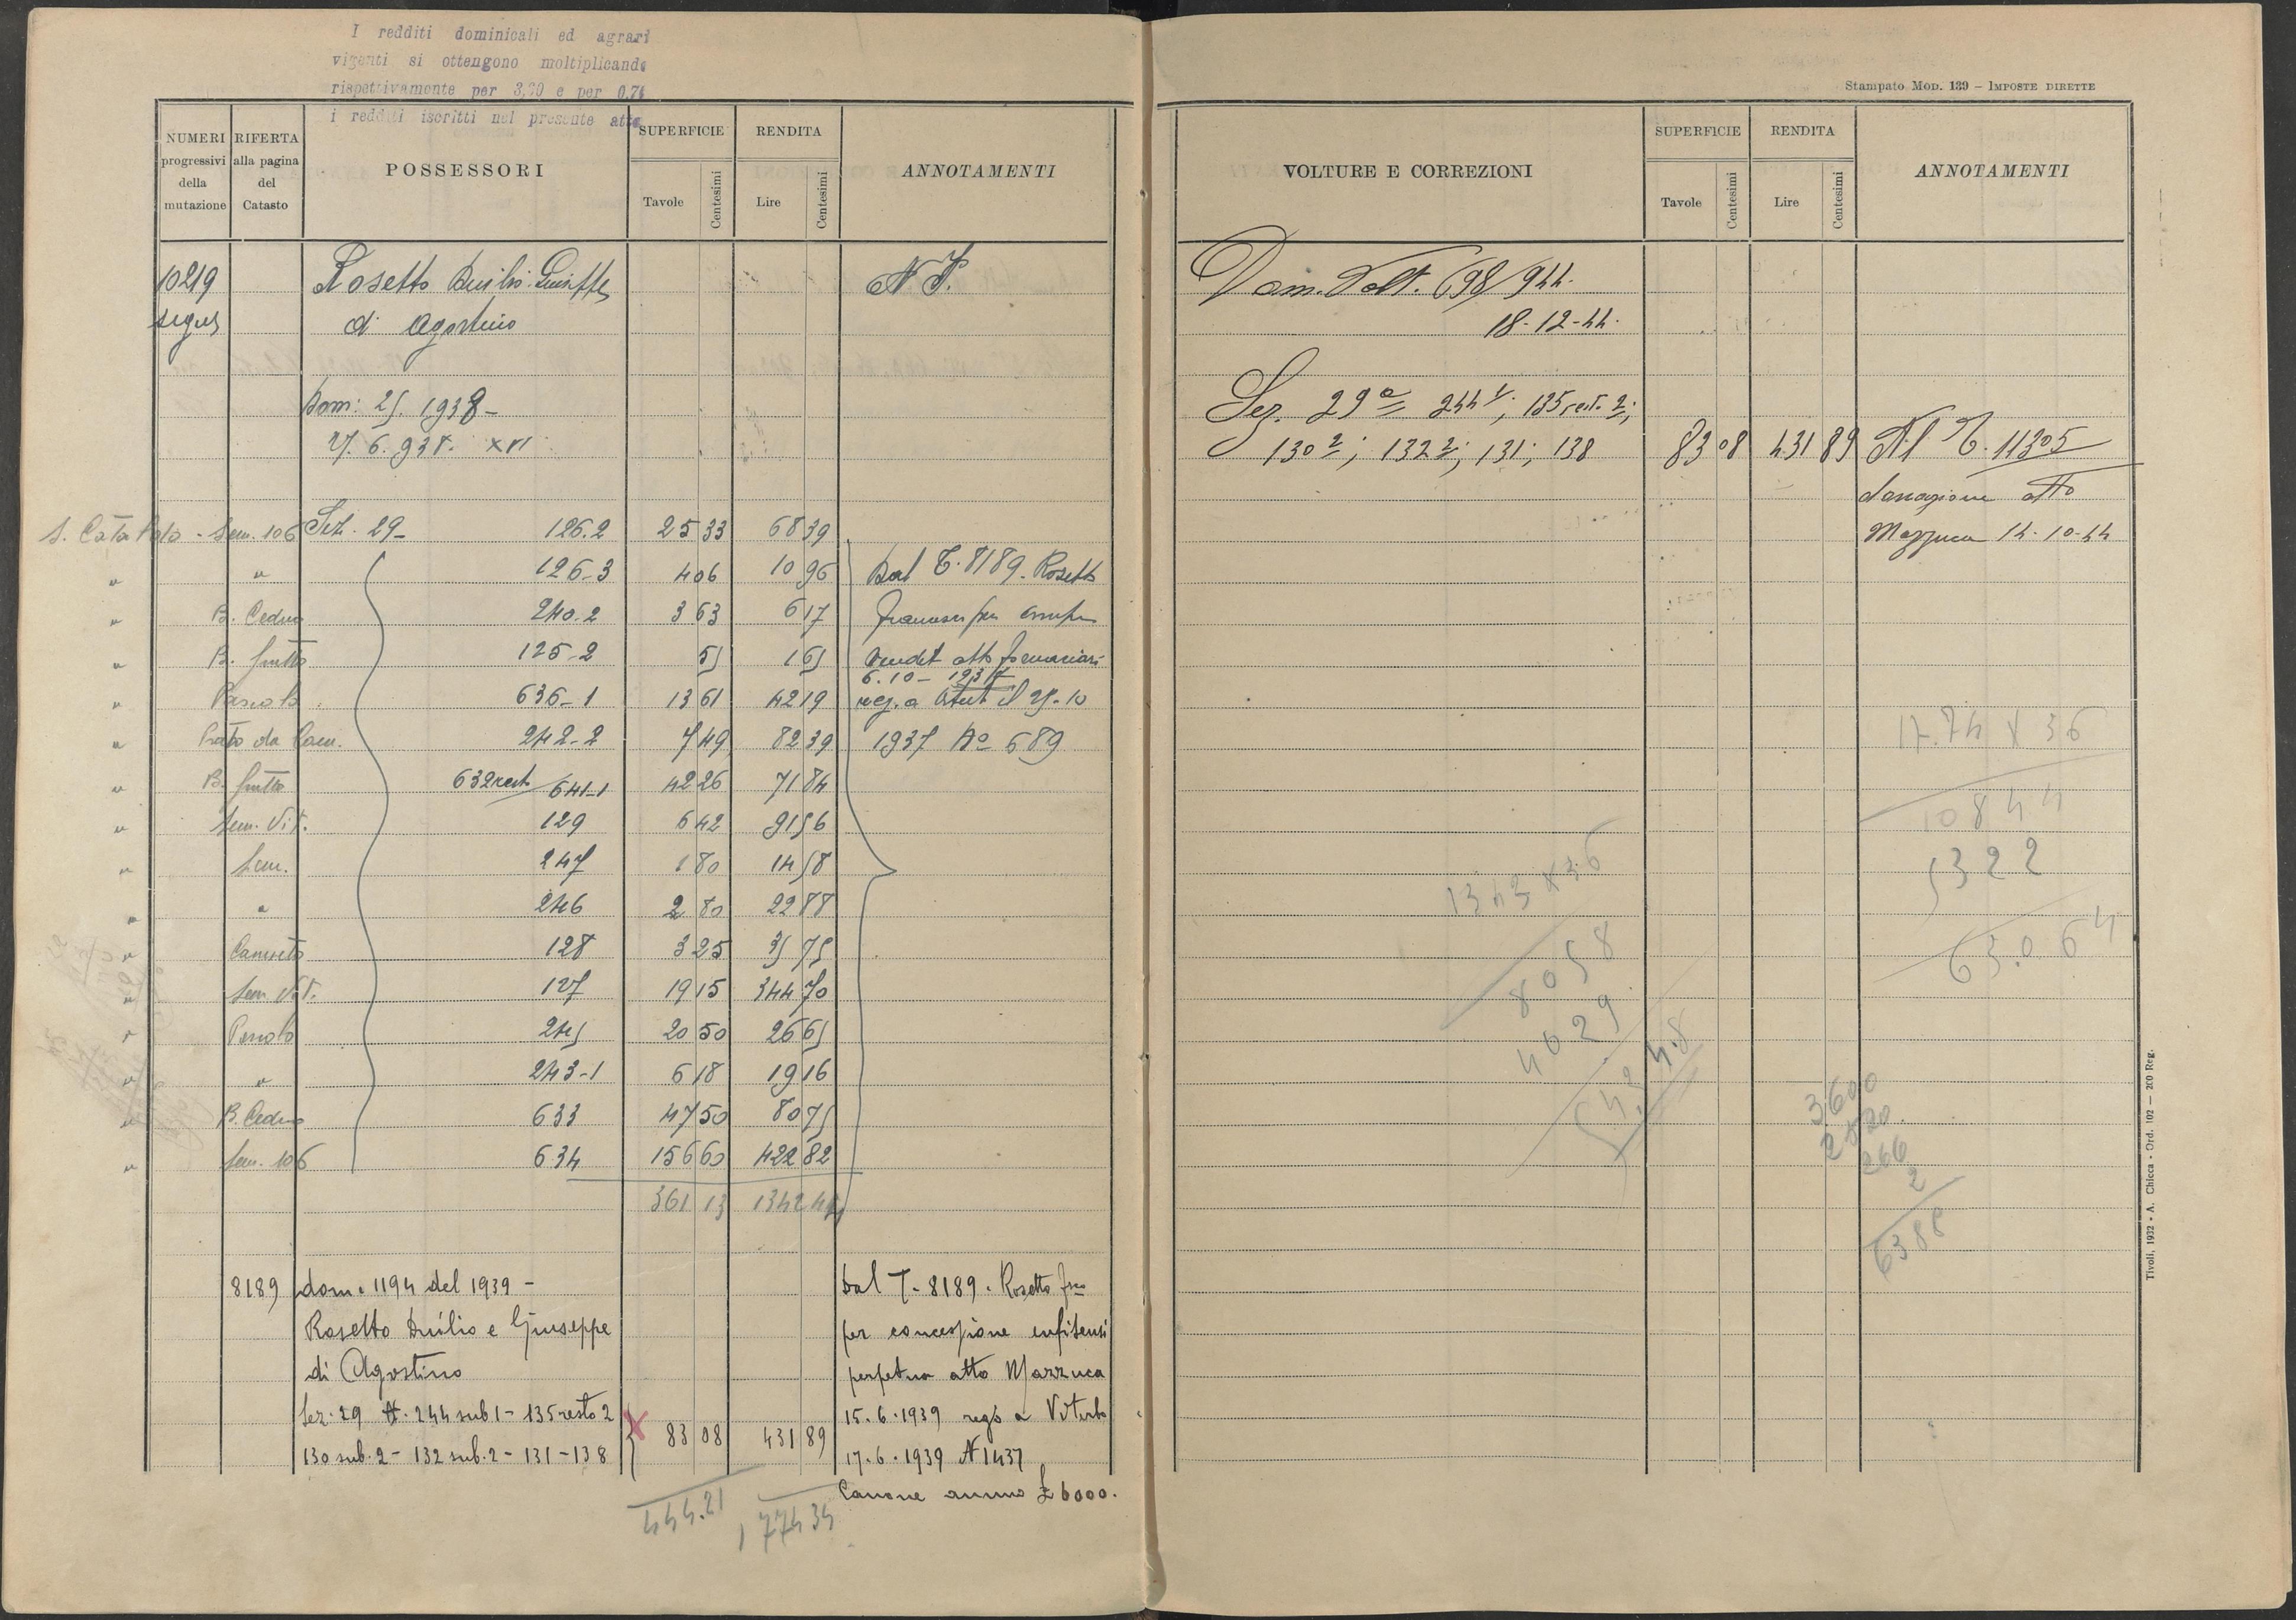 I redditi dominicali ed agrari
vigenti si ottengono moltiplicando
rispettivamente per e per
i redditi iscritti nel presente atto
NUMERI progressivi della mutazione
RIFERTA alla pagina del Catasto
POSSESSORI
SUPERFICIE
Tavole Centesimi
RENDITA
Lire Centesimi
ANNOTAMENTI
10219 Rosetto Duilio Giuseppe N.
segue di Agostino
Dom: 25. 1938 -
27. 6. 938. XVI
Sem. 106 Sez. 29- 126.2 25 33 68 39
" " 126-3 4 06 10 96 Dal T. 8189. Rosetto
" B. Ceduo 240.2 3 63 6 17
" B. frutto 125-2 55 1 65 vendet atto
6.10- 1937
" Pascolo 636-1 13 61 42 19 reg. a il 25-10
" Prato da 242-2 7 49 82 39 1937 No 689
" B. frutto 632 rest / 641-1 42 26 71 84
" Sem. Vit. 129 6 42 91 56
" Sem. 247 1 80 14 58
" " 246 2 80 22 88
" Canneto 128 3 25 35 75
" Sem Vit. 127 19 15 344 70
" Pascolo 245 20 50 26 65
" " 243-1 6 18 19 16
" B. Ceduo 633 47 50 80 75
" Sem. 106 634 156 60 422 82
361 13 1342 44
8189 dom. 1194 del 1939 - Dal T. 8189. Rosetto Fco
Rosetto Duilio e Giuseppe per concessione enfiteusi
di Agostino perpetua atto Mazzuca
Sez. 29 N. 244 sub 1 - 135 resto 2 15.6.1939 regto a Viterbo
130 sub. 2 - 132 sub. 2 - 131 - 138 83 08 431 89 17.6.1939 N 1437
Canone annuo £ 6000.
444.21 1,774 34
Stampato Mod. 139 – Imposte dirette
VOLTURE E CORREZIONI
SUPERFICIE
Tavole Centesimi
RENDITA
Lire Centesimi
ANNOTAMENTI
Dom. Volt. 698/944.
18-12-44.
Sez. 29a 244 1; 135 rest. 2;
130 2; 132 2; 131; 138 83 08 431 89 Al T. 11305
donazione atto
Mazzuca 14-10-44
17.74 x 36
10844
5322
63.064
1343 x 36
8058
4029
3600
2520
266
2
6388
Tivoli, 1932 - A. Chicca - Ord. 102 — 200 Reg.